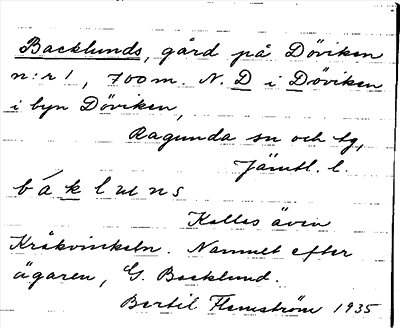 Backlunds, gård på Döviken
n:r 1, 700 m. N. D i Döviken
i byn Döviken,
Ragunda sn och tg,
Jämtl. l.
bák lu n s
Kallas även
Kråkvinkeln. Namnet efter
ägaren, G. Backlund.
Bertil Flemström 1935